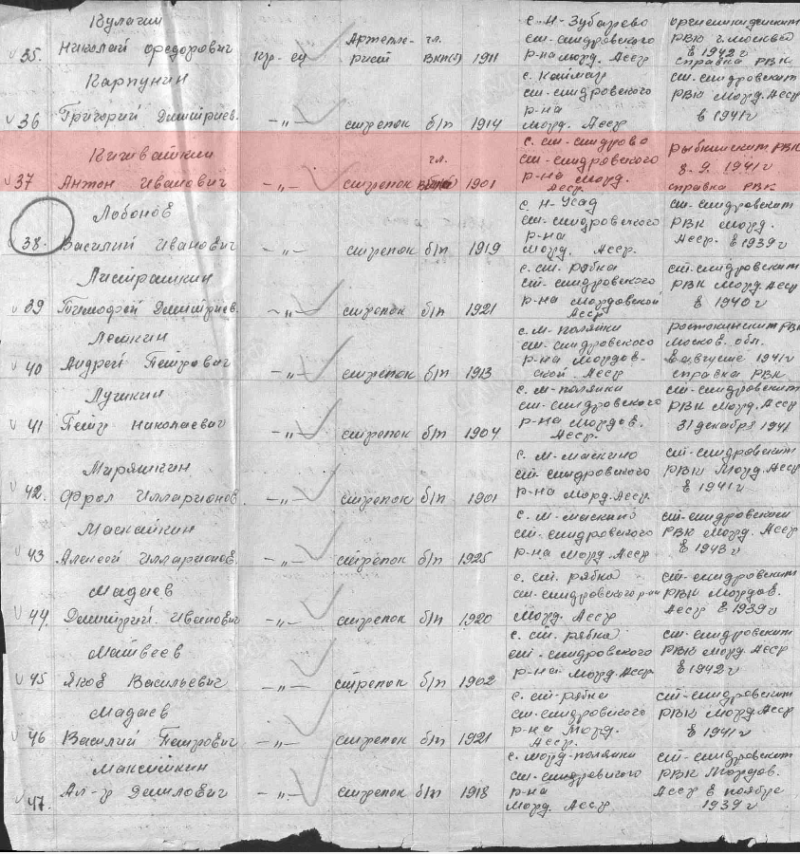 Кулагин
35. Николай Федорович Кр-ец Артилле-рист гл. ВКП(б) 1911 с. Н-Зубарево ст-синдровского р-на морд. Асср РВК г. Москвы в 1942 г справка РВК
Карпунин
36 Григорий Дмитриев. -„- стрелок б/п 1914 ст-синдровского р-на Морд. Асср ст-синдровским РВК Морд. Асср в 1941 г
37 Антон Иванович -„- стрелок 1901 с. ст-синдрово ст-синдровского р-на морд. Асср Рыбкинским РВК 8.9.1941 г справка РВК
Лобонов
38. Василий Иванович -„- стрелок б/п 1919 с. Н-Усад ст-синдровского р-на Морд. Асср ст-синдровским РВК Морд. Асср. в 1939 г
39 Тимофей Дмитриев. -„- стрелок б/п 1921 с. ст. рябка ст-синдровского р-на Мордовской Асср ст-синдровским РВК Морд Асср в 1940 г
Лешкин
40 Андрей Петрович -„- стрелок б/п 1913 с. М-поляны ст-синдровского р-на Мордов-ской Асср Ростокинским РВК Москов. обл. в августе 1941 г справка РВК
41 Петр Николаевич -„- стрелок б/п 1904 с. М-поляны ст-синдровского р-на Мордов. Асср. ст-синдровским РВК Морд. Асср 31 декабря 1941
Миряшкин
42. Фрол Илларионов. -„- стрелок б/п 1901 с. М-маскино ст-синдровского р-на Морд. Асср. ст-синдровским РВК Морд. Асср в 1941 г
Маскайкин
43 Алексей Илларионов. -„- стрелок б/п 1925 с. М-маскино ст-синдровского р-на Морд. Асср ст-синдровским РВК Морд. Асср в 1943 г
Мадаев
44. Дмитрий Иванович -„- стрелок б/п 1920 с. ст. рябка ст-синдровского р-на Морд. Асср ст-синдровским РВК Мордов. Асср в 1939 г
Матвеев
45 Яков Васильевич -„- стрелок б/п 1902 с. ст. рябка ст-синдровского р-на Морд. Асср ст-синдровским РВК Морд Асср в 1942 г
Мадаев
46 Василий Петрович -„- стрелок б/п 1921 с. ст-рябка ст-синдровского р-на Морд. Асср. ст-синдровским РВК Морд. Асср в 1941 г
47. Ал-р Данилович -„- стрелок б/п 1918 с. Морд-поляны ст-синдровского р-на Морд. Асср ст-синдровским РВК Мордов. Асср в ноябре 1939 г